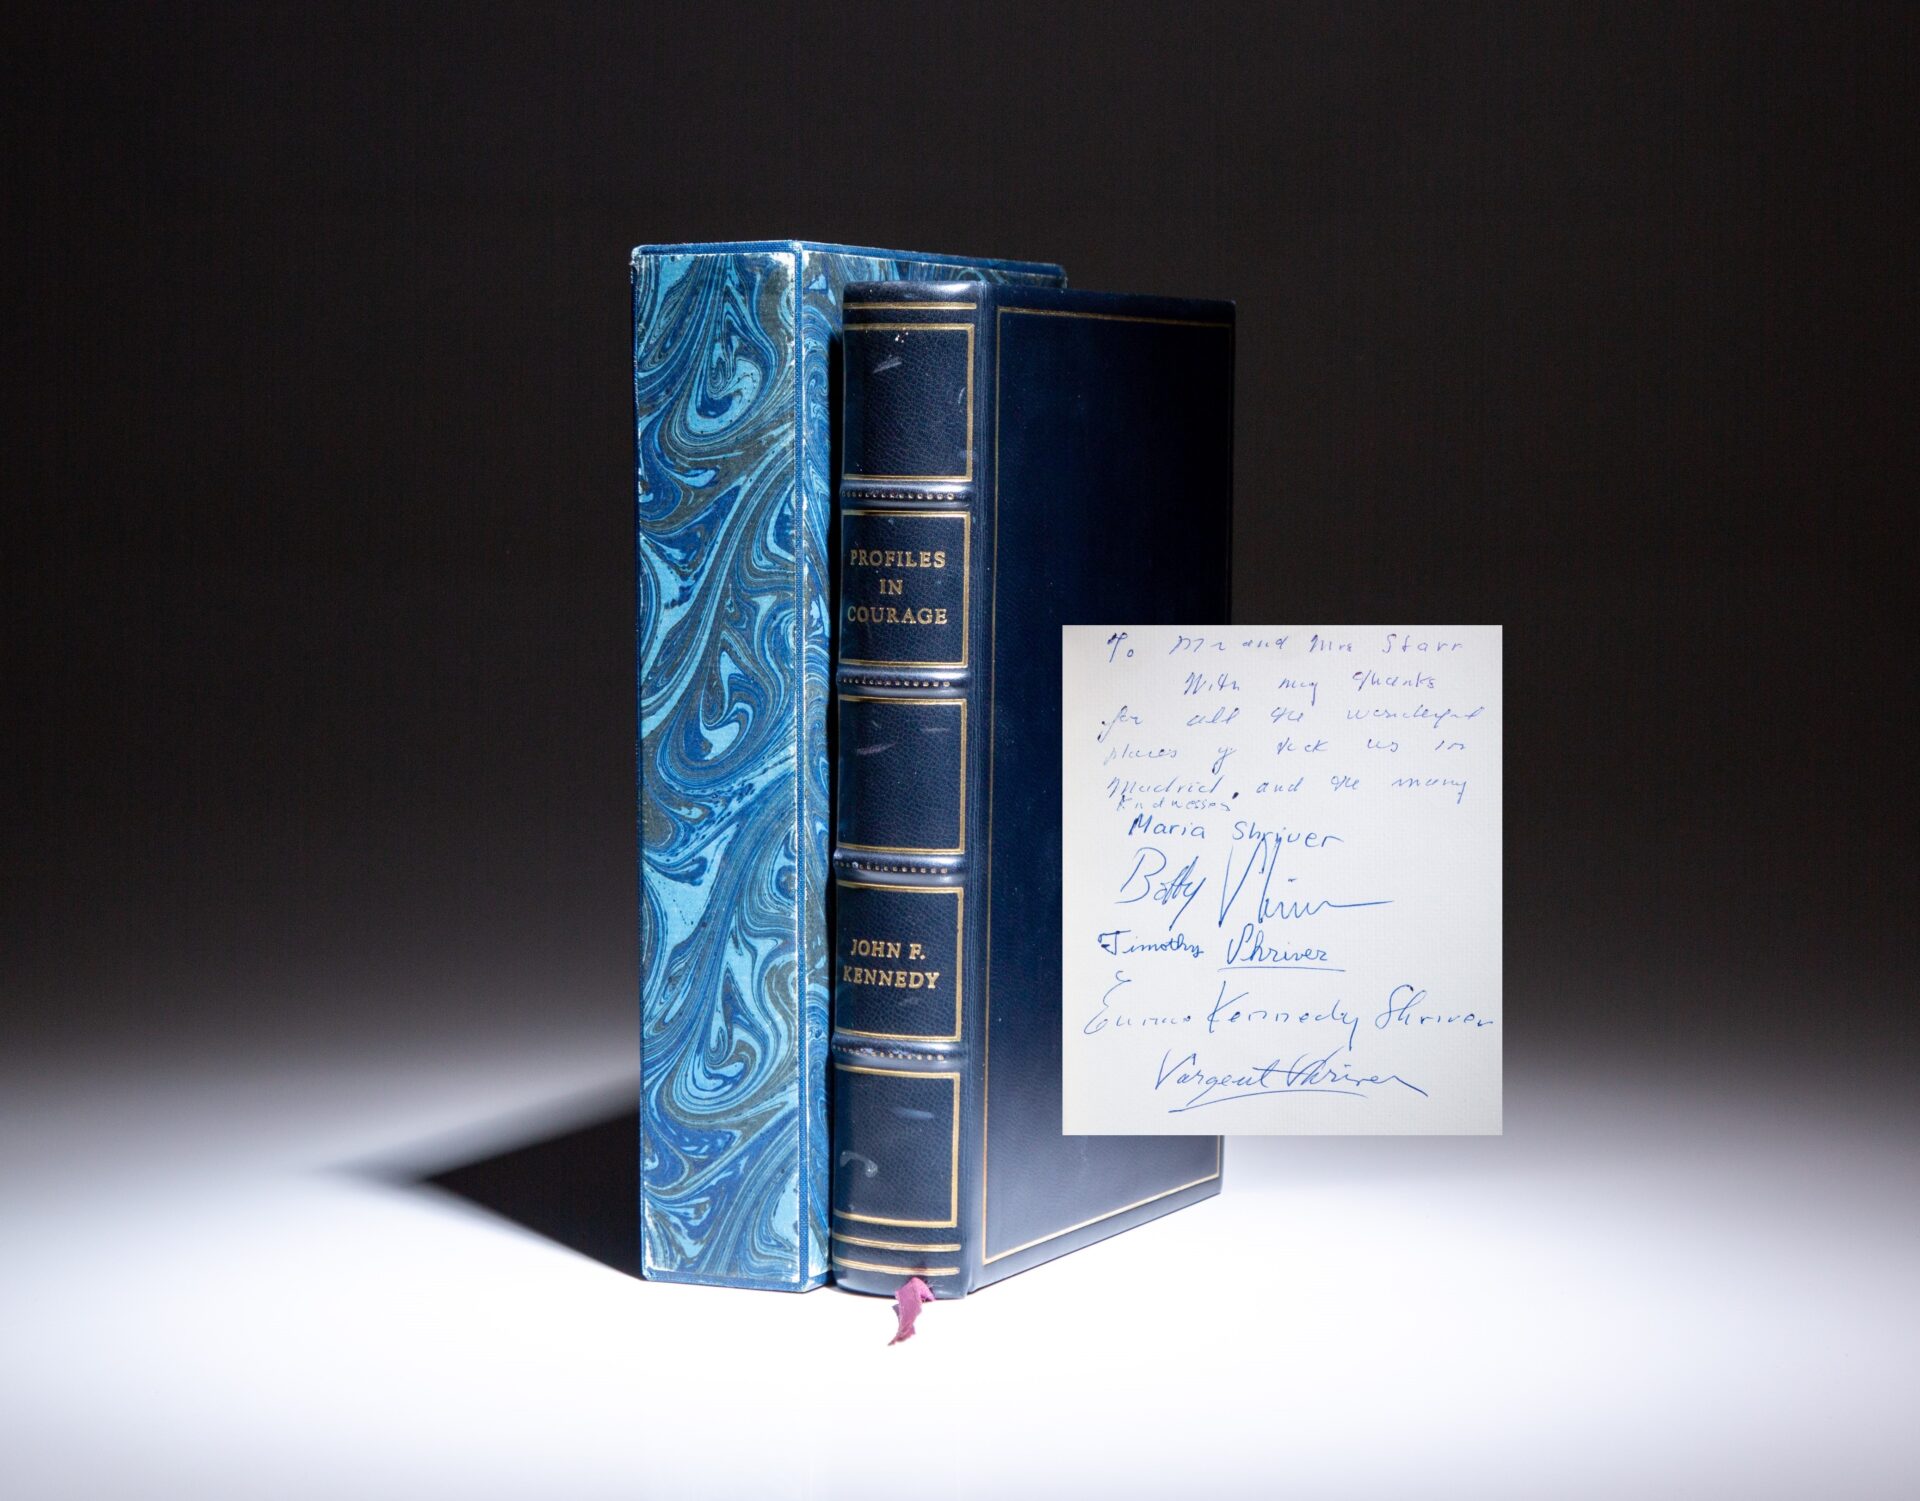 PROFILES
IN
COURAGE
JOHN F.
KENNEDY
To Mr and Mrs Starr
With my thanks
for all the wonderful
places you took us in
Madrid, and the many
kindnesses
Maria Shriver
Bobby Shriver
Timothy Shriver
Eunice Kennedy Shriver
Sargent Shriver